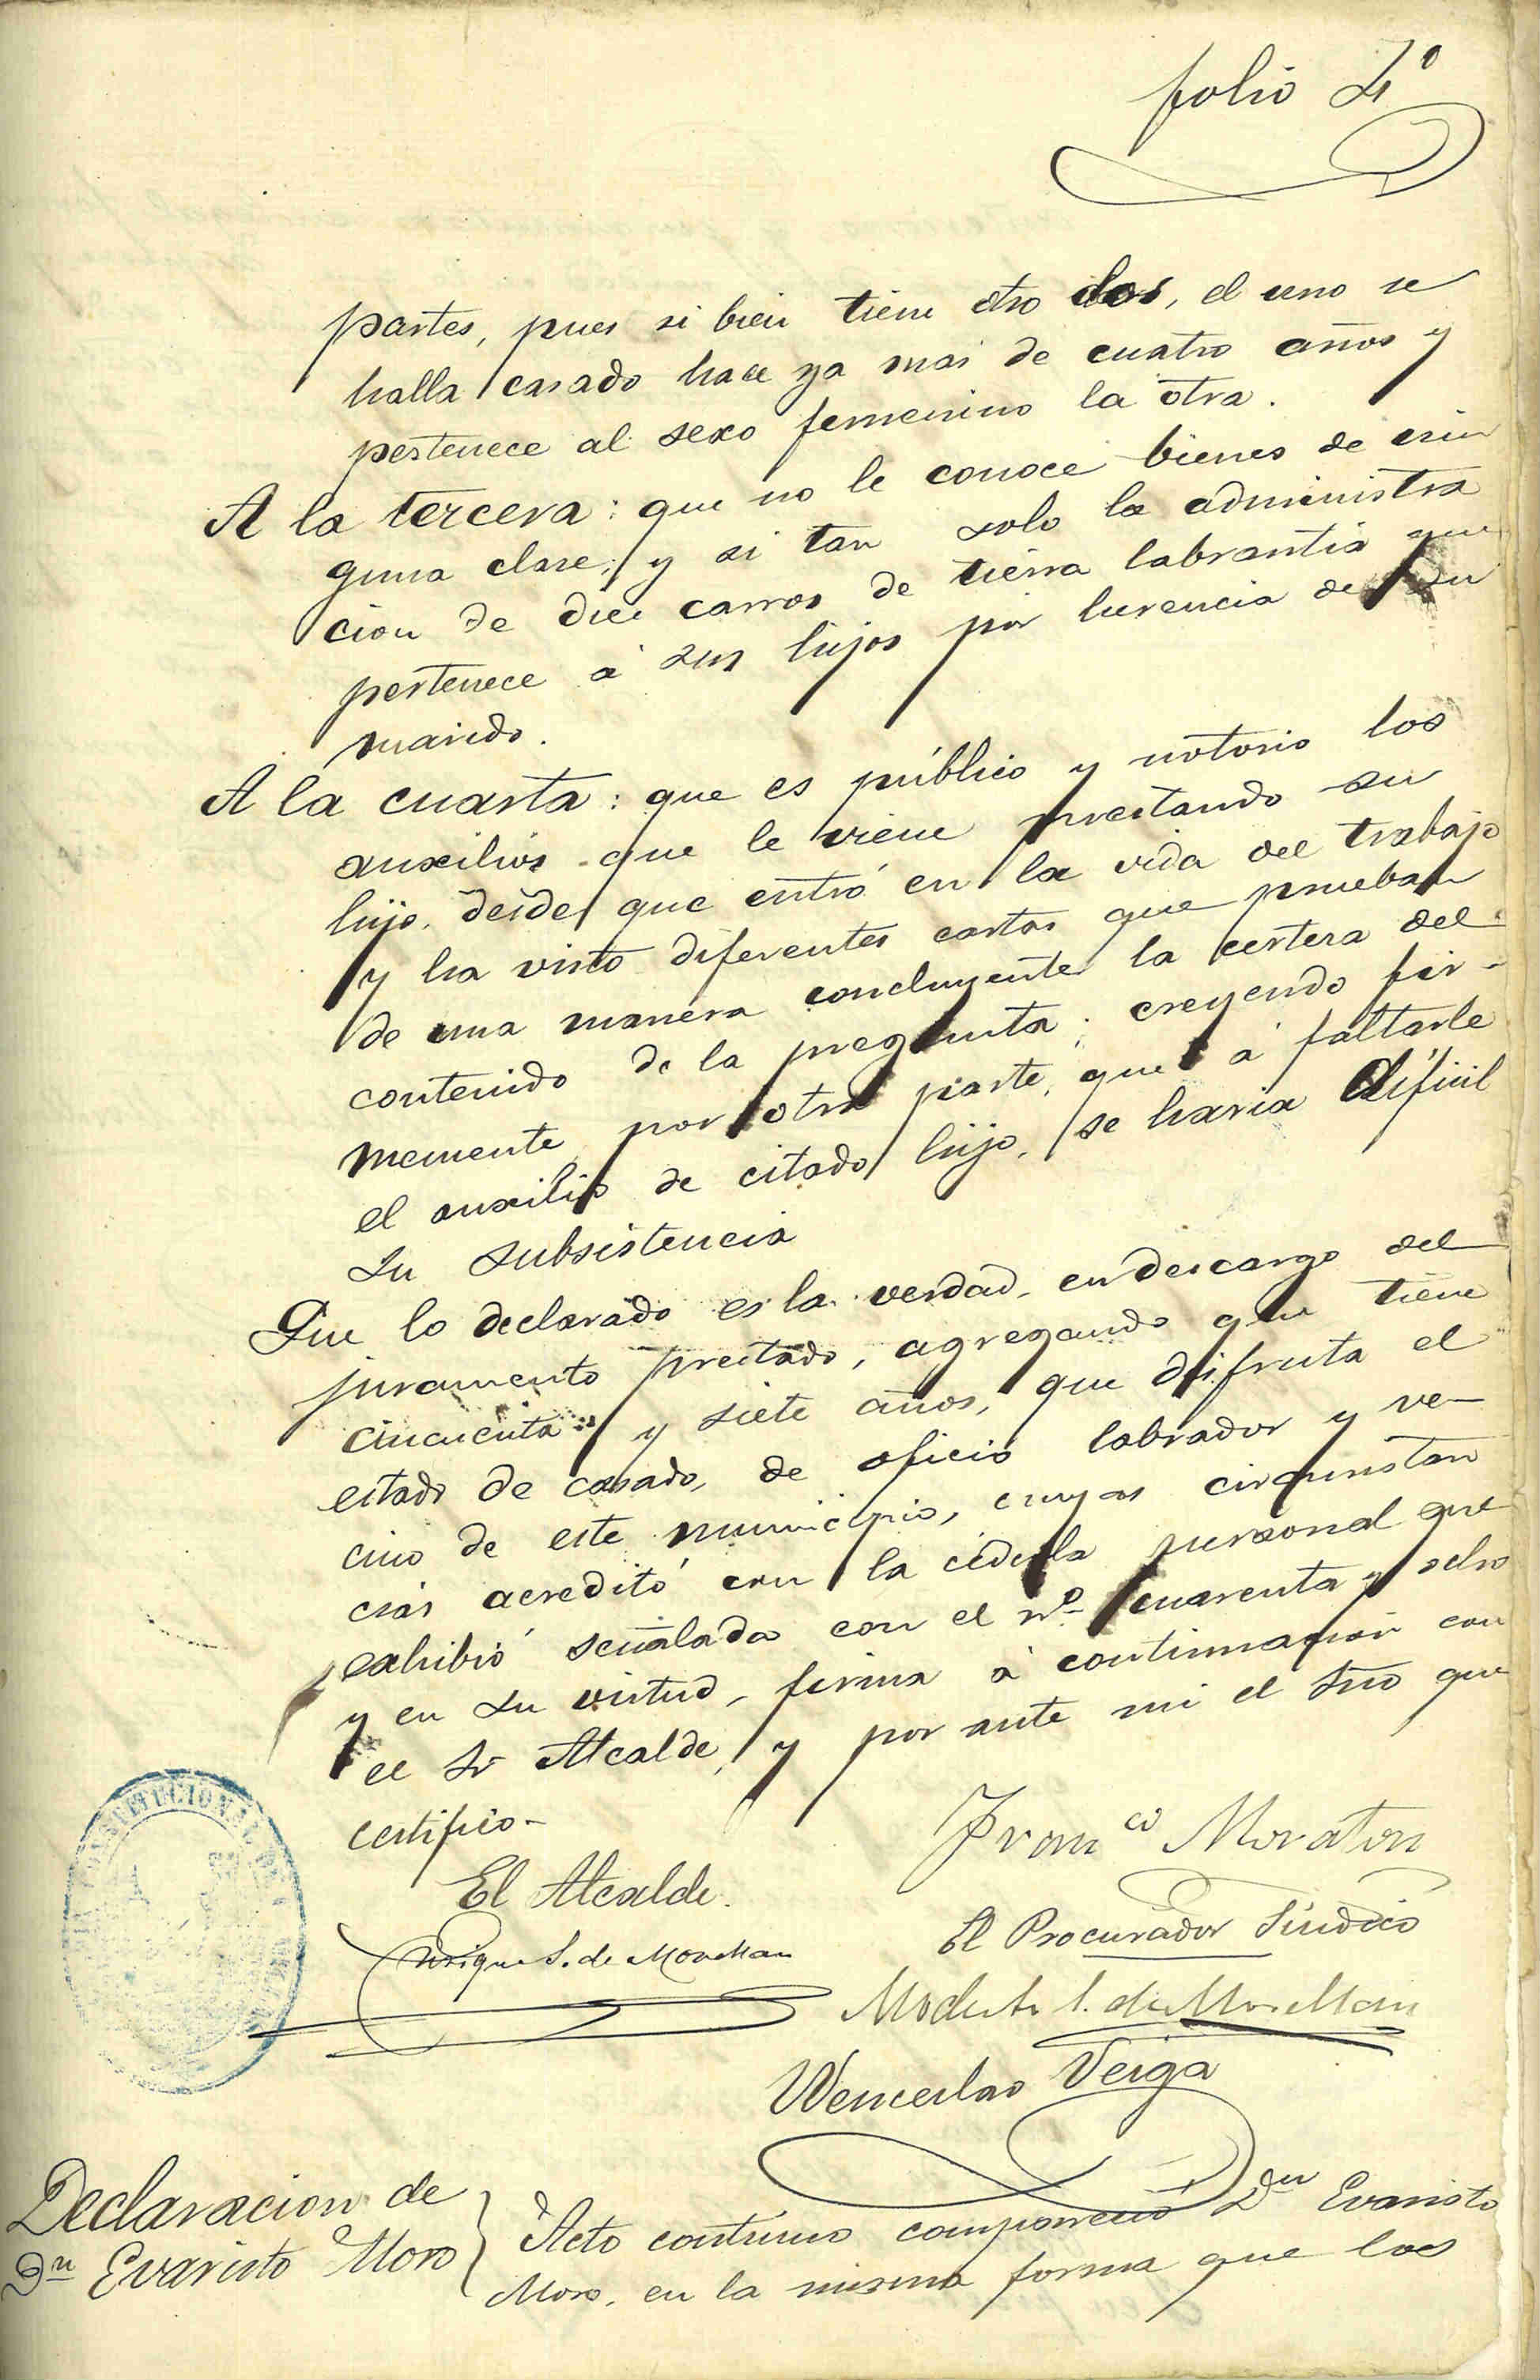 folio 4º
partes, pues si bien tiene otro dos, el uno se
halla casado hace ya mas de cuatro años y
pertenece al sexo femenino la otra.
A la tercera: que no le conoce bienes de nin
guna clase, y si tan solo la administra
cion de diez carros de tierra labrantia que
pertenece á sus hijos por herencia de su
marido.
A la cuarta: que es público y notorio los
auxilios que le viene prestando su
hijo, desde que entró en la vida del trabajo
y ha visto diferentes cartas que prueban
de una manera concluyente la certeza del
contenido de la pregunta; creyendo fir-
memente por otra parte, que á faltarle
el auxilio de citado hijo, se haria dificil
su subsistencia
Que lo declarado es la verdad, en descargo del
juramento prestado, agregando que tiene
cincuenta y siete años, que disfruta el
estado de casado, de oficio labrador y ve-
cino de este municipio, cuyas circunstan
cias acreditó con la cédula personal que
exhibió señalada con el nº cuarenta y ocho
y en su virtud, firma á continuacion con
el Sr Alcalde, y por ante mi el Srio que
certifico-
Franco Moraton
El Alcalde.
El Procurador Síndico
Enrique S. de Movellan
Modesto S. de Movellan
Wenceslao Veiga
CONSTITUCIONAL DE
Declaracion de
Dn Evaristo Moro
Acto contínuo compareció Dn Evaristo
Moro, en la misma forma que los